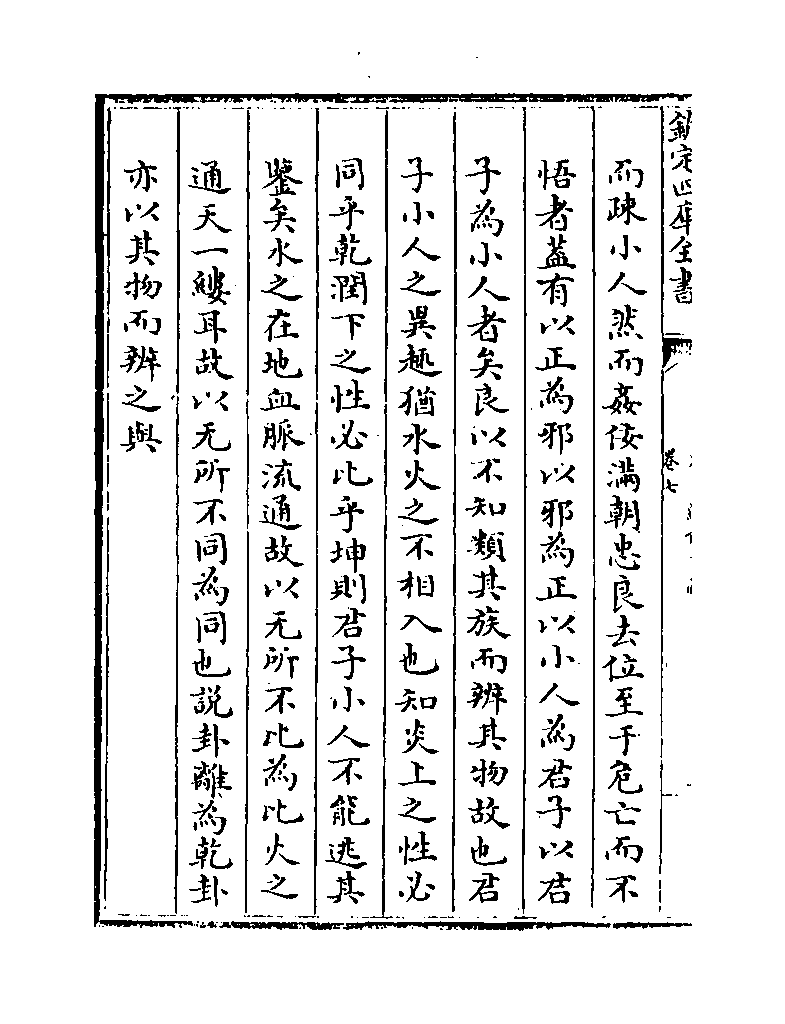 欽定四庫全書
卷七
而疎小人然而姦佞滿朝忠良去位至于危亡而不
悟者蓋有以正為邪以邪為正以小人為君子以君
子為小人者矣良以不知類其族而辨其物故也君
子小人之異趣猶水火之不相入也知炎上之性必
同乎乾潤下之性必比乎坤則君子小人不能逃其
鑒矣水之在地血脈流通故以无所不比為比火之
通天一縷耳故以无所不同為同也說卦離為乾卦
亦以其物而辨之與